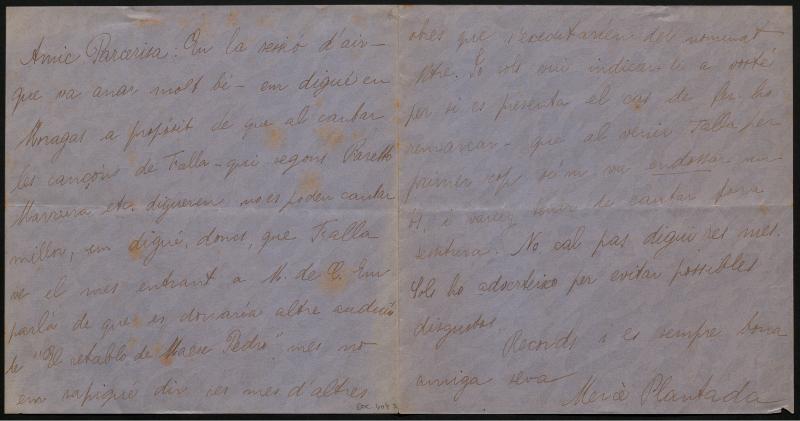 Amic Parcerisa: En la sessió d'air-
que va anar molt bé - em digué en
Moragas a propósit de que al cantar
les cançons de Falla - qui segons
etc. digueren no es poden cantar
millor, em digué, doncs, que Falla
ve el mes entrant a M. de C. Em
parlá de que es donaría altre audició
de "El retablo de Maese Pedro" mes no
em sapigué dir res mes d'altres
obres que s'executaríen del nomenat
Mtre. Jo sols vui indicar-li a vosté
per si es presenta el cas de fer-ho
remarcar - que al venir Falla per
primer cop va endossar
i vareig tenir de cantar fora
. No cal pas digui res mes.
Sols ho adverteixo per evitar possibles
disgustos.
Records i es sempre bona
amiga seva
Mercè Plantada